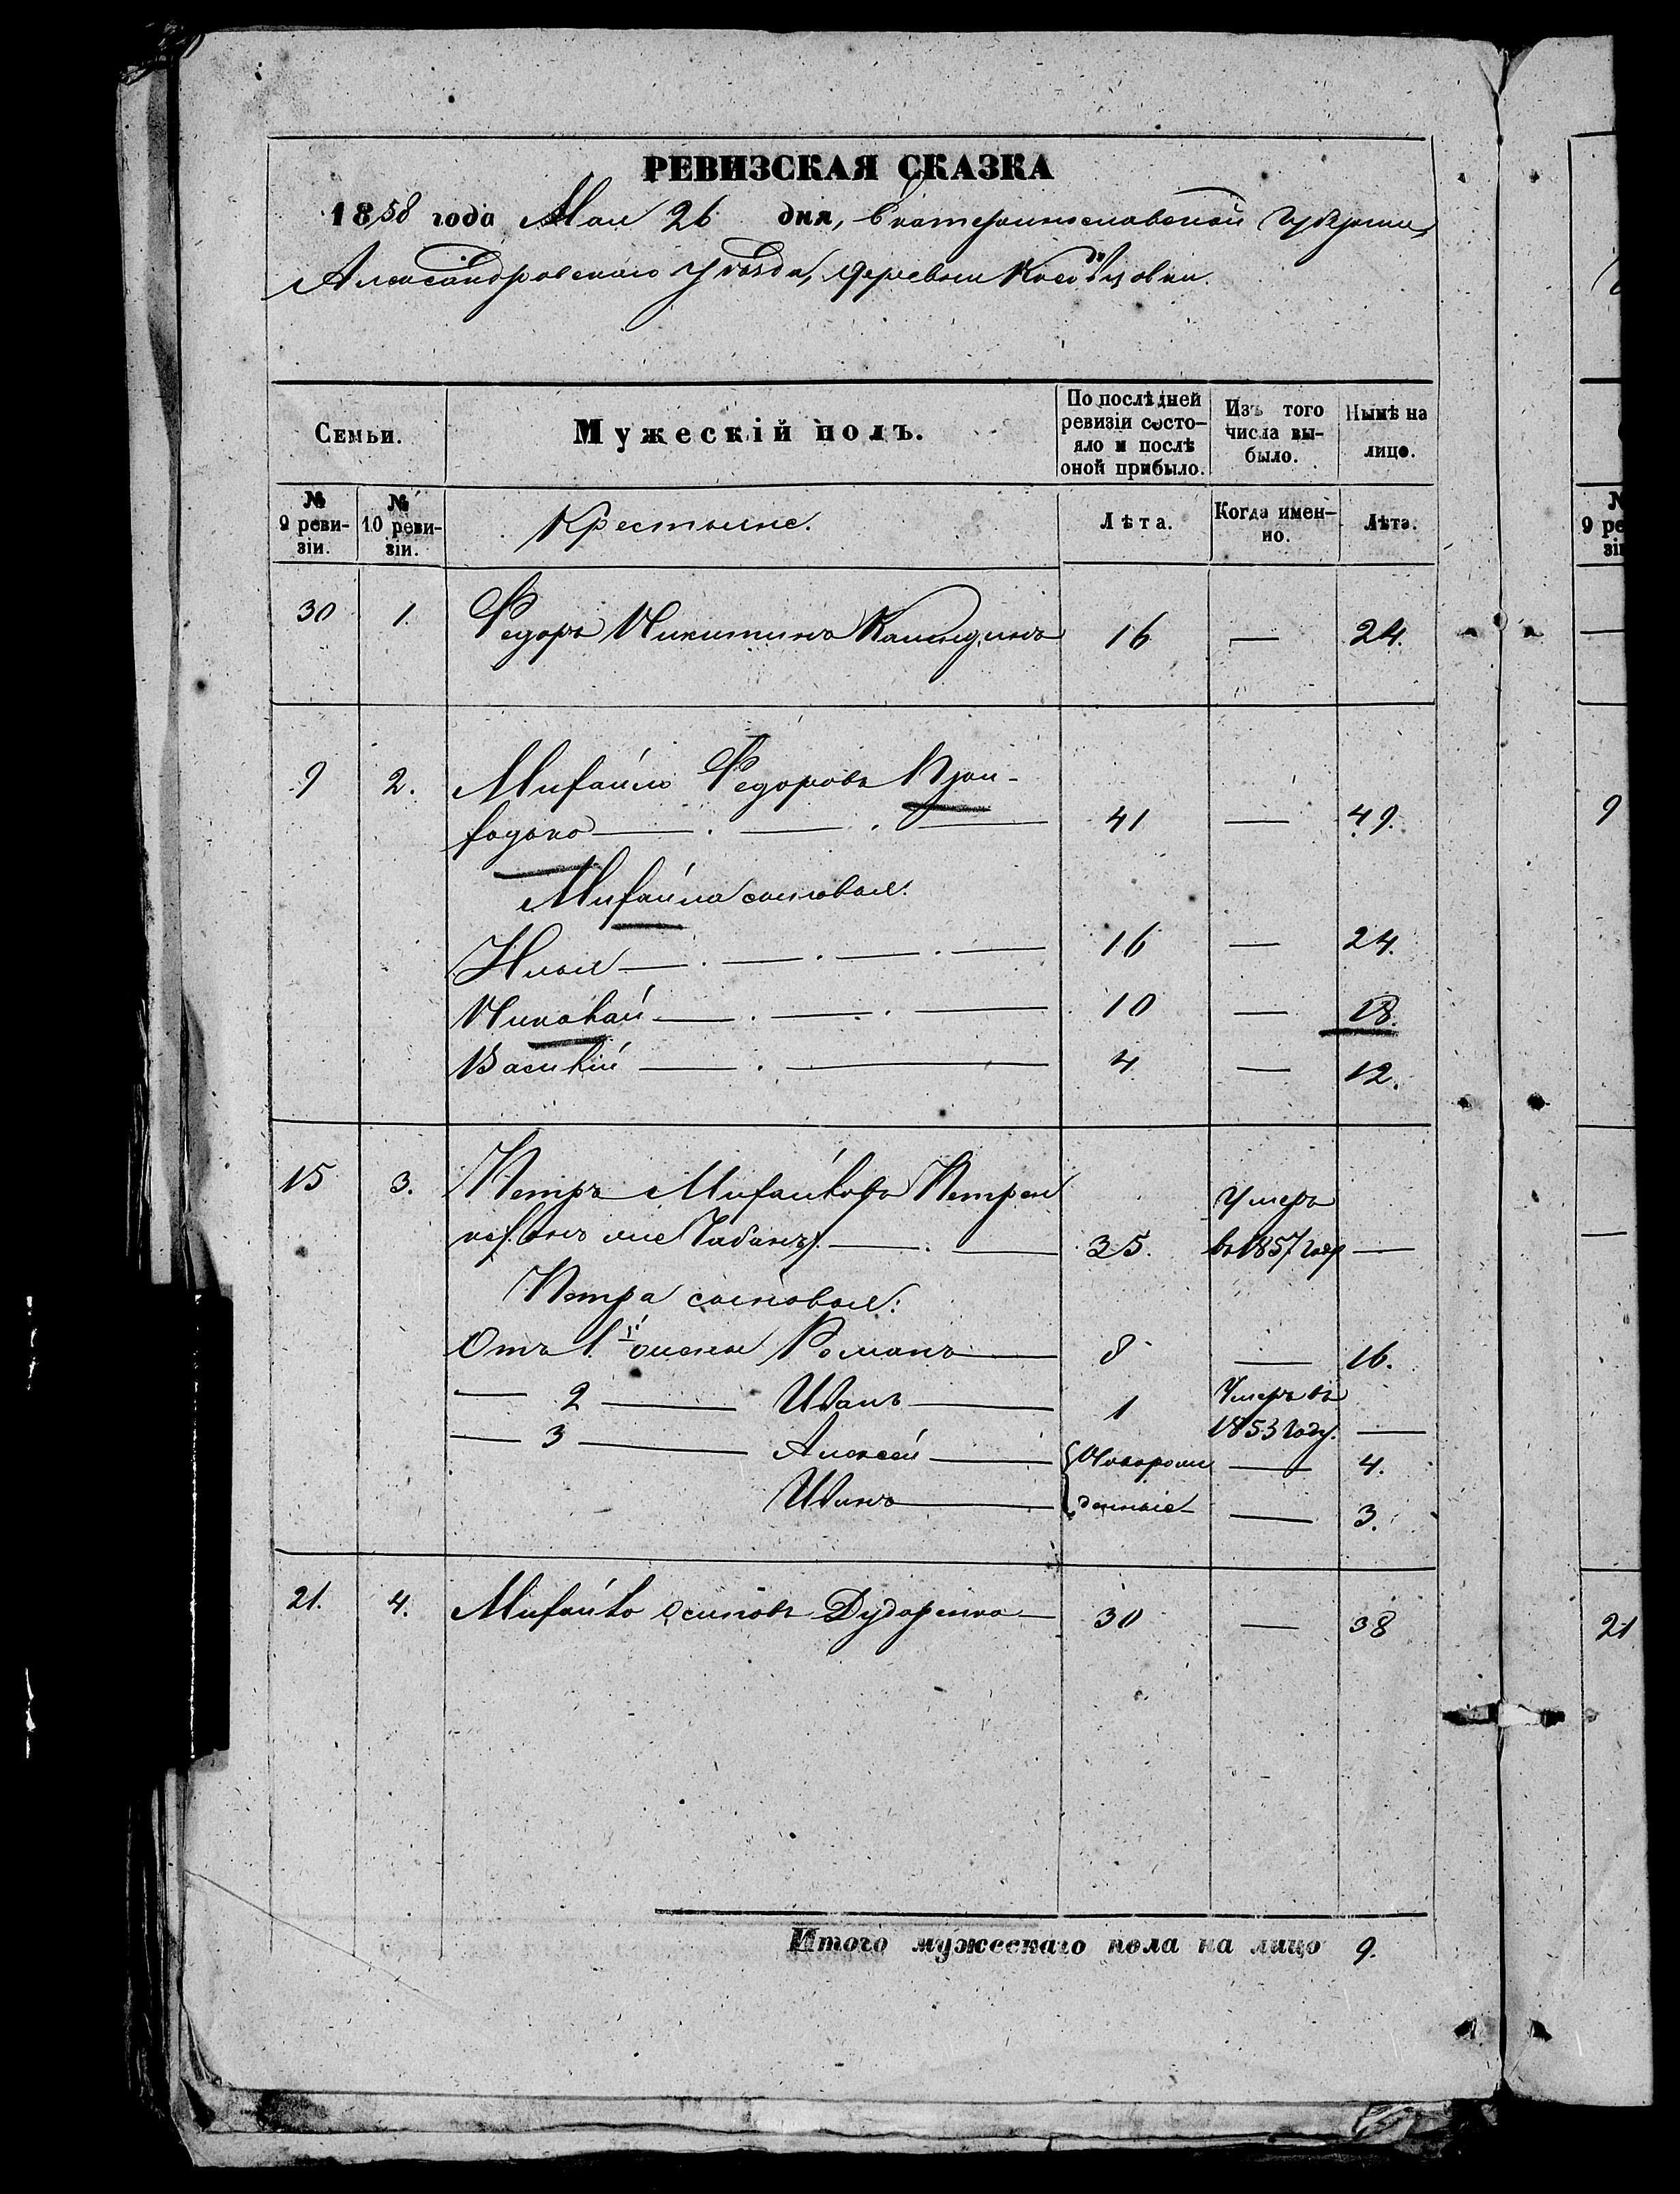 РЕВИЗСКАЯ СКАЗКА
1858 года Мая 26 дня, Екатеринославской Губернии
Александровскаго Уѣзда, деревни
Семьи.
Мужескій полъ.
По послѣдней ревизіи состо-
яло и послѣ оной прибыло.
Изъ того числа вы-
было.
Нынѣ на лицо.
№ 9 реви-
зіи.
№ 10 реви-
зіи.
Крестьяне.
Лѣта.
Когда имен-
но.
Лѣта.
30 1. Федоръ Никитинъ 16 — 24.
9 2. Михайло Федоровъ
41 — 49.
Михайла сыновья:
Илья 16 — 24.
Николай 10 — 18.
Василій 4 — 12.
15 3. Петръ Михайловъ Петрен
ко (онъ же Чабанъ) 35. Умеръ
въ 1857 году —
Петра сыновья:
Отъ 1й жены Романъ 8 — 16.
— 2 — Иванъ 1 Умеръ въ
1853 году. —
— 3 — Алексѣй { Новорож — 4.
Иванъ денные — 3.
21. 4. Михайло Осиповъ Дударенко 30 — 38
Итого мужескаго пола на лицо 9.
9 ре
зі
9
21